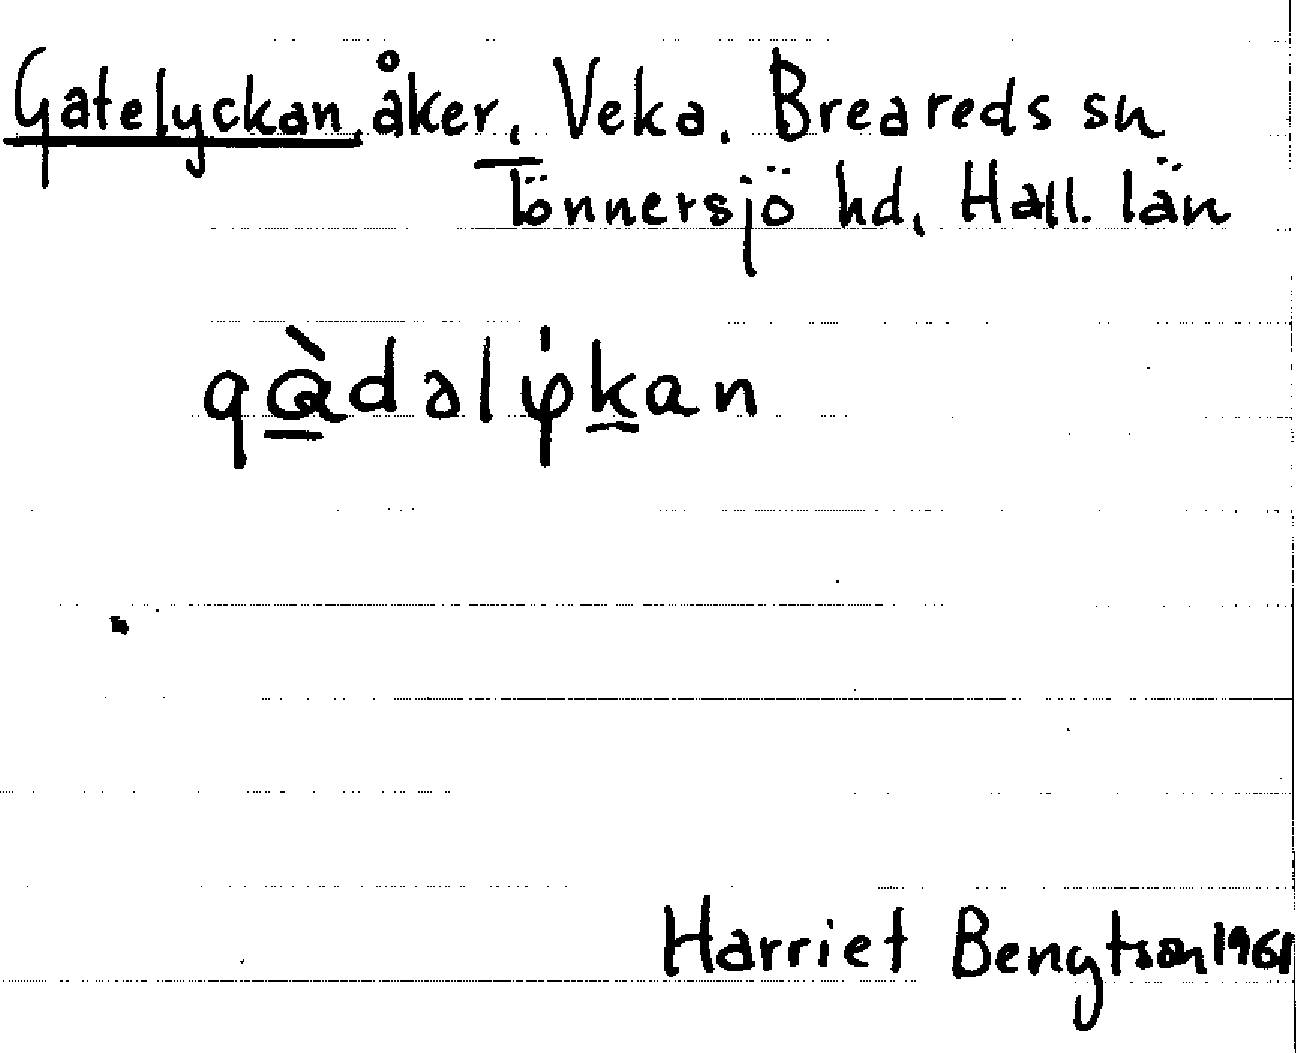 Gatelyckan åker, Veka. Breareds sn
Tönnersjö hd, Hall. län
Harriet Bengtson 1961